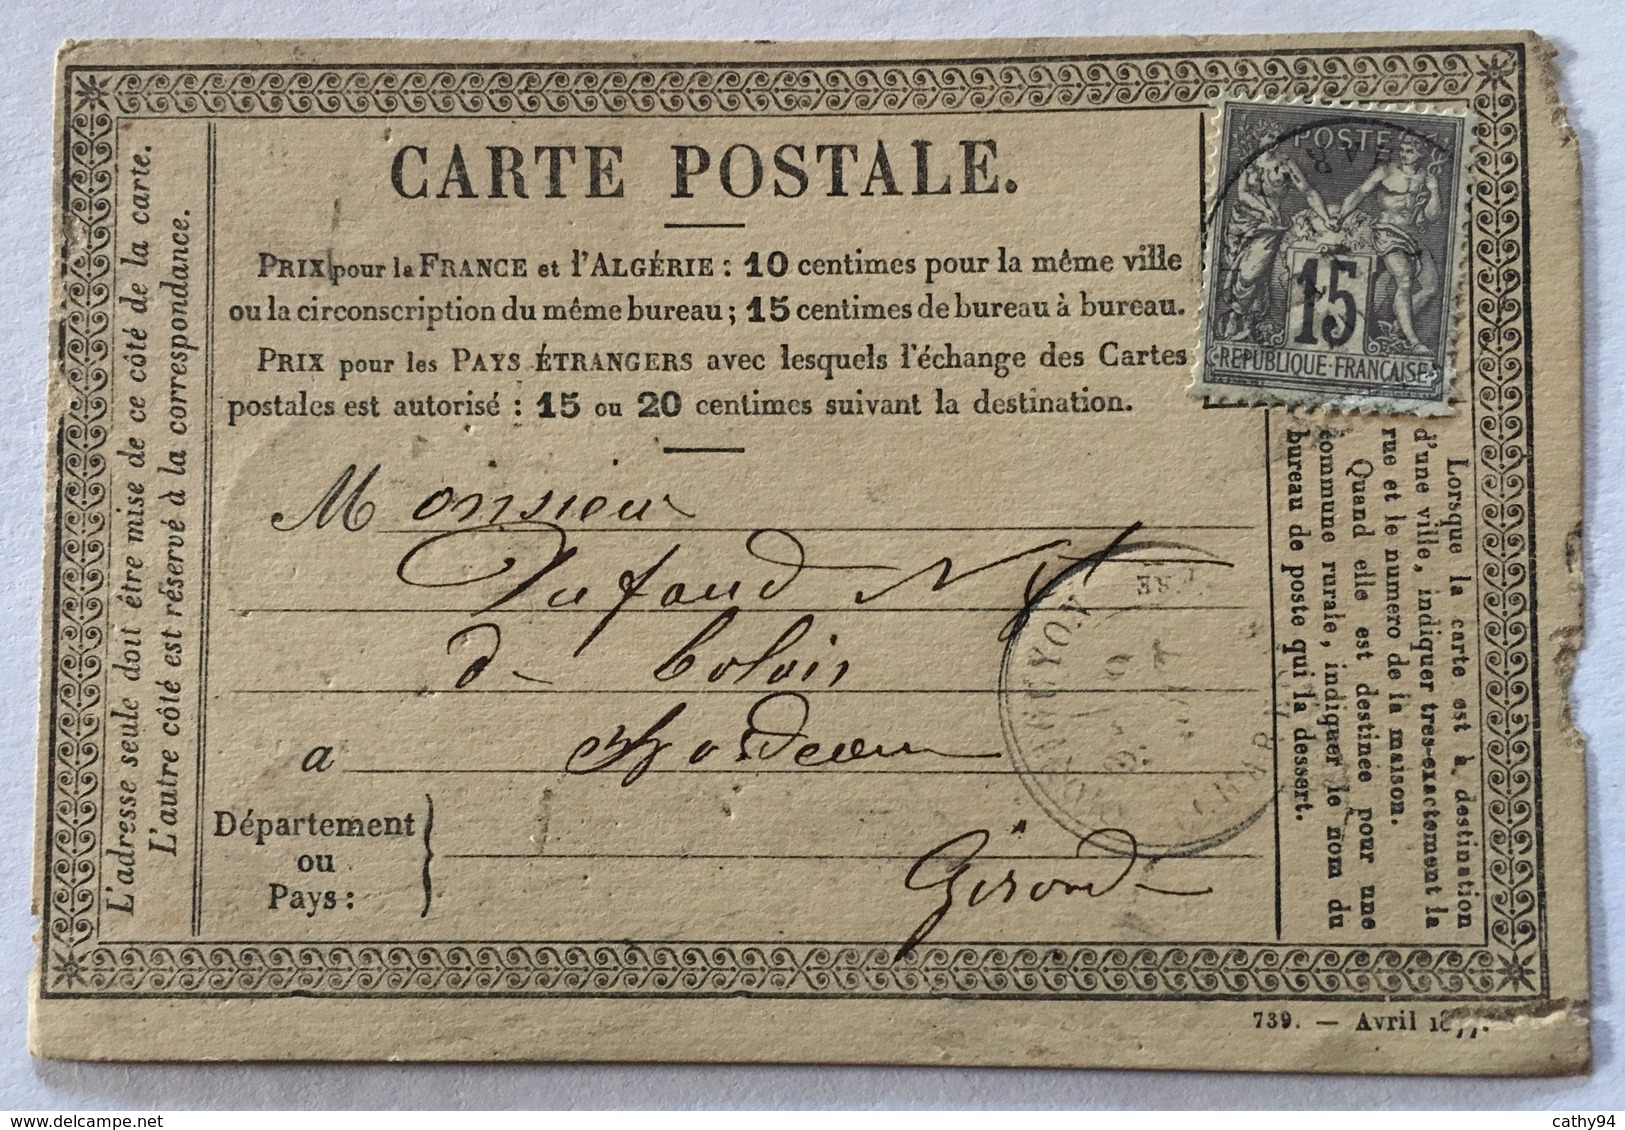 CARTE POSTALE.
PRIX pour la FRANCE et l'ALGÉRIE : 10 centimes pour la même ville
ou la circonscription du même bureau ; 15 centimes de bureau à bureau.
PRIX pour les PAYS ÉTRANGERS avec lesquels l'échange des Cartes
postales est autorisé : 15 ou 20 centimes suivant la destination.
POSTE
15
REPUBLIQUE FRANÇAISE
L'adresse seule doit être mise de ce côté de la carte.
L'autre côté est réservé à la correspondance.
Monsieur
Dufaud
de
a Bordeaux
Département
ou
Pays :
Gironde
Lorsque la carte est à destination
d'une ville, indiquer très-exactement la
rue et le numéro de la maison.
Quand elle est destinée pour une
commune rurale, indiquer le nom du
bureau de poste qui la dessert.
739. — Avril 1877.
cathy94